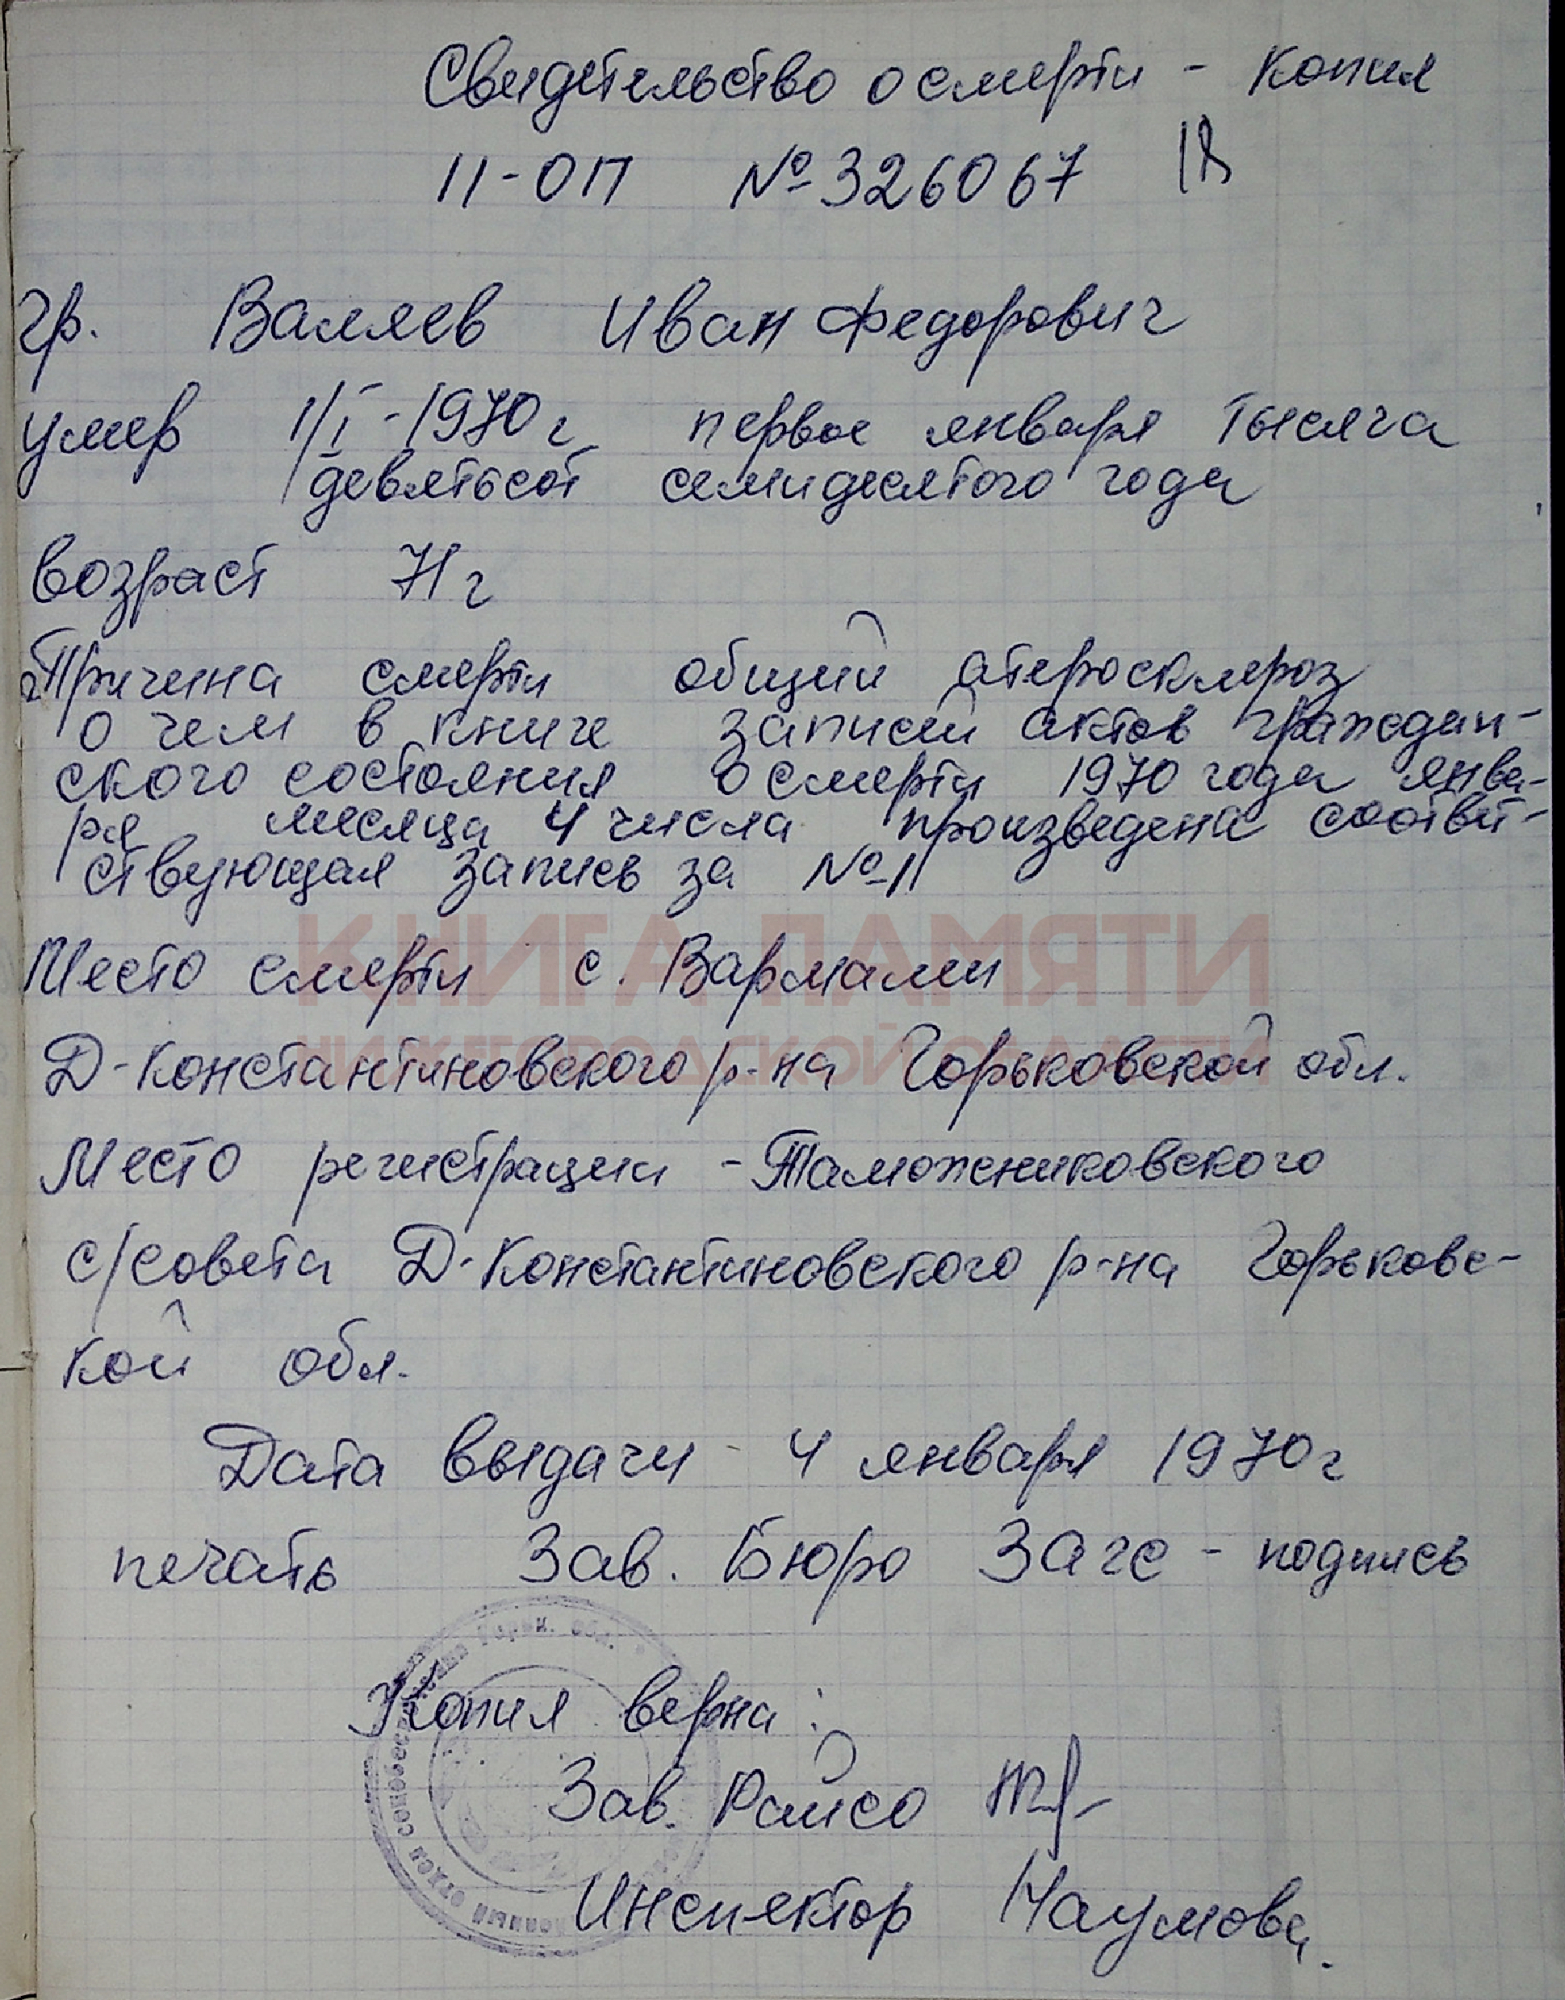 Свидетельство о смерти - копия
II-ОП № 326067 18
гр. Валяев Иван Федорович
умер 1/I-1970г первое января тысяча
девятьсот семидесятого года
возраст 71г
Причина смерти общий атеросклероз
о чем в книге записей актов граждан-
ского состояния о смерти 1970 года янва-
ря месяца 4 числа произведена соответ-
ствующая запись за № 11
КНИГА ПАМЯТИ
Место смерти с. Вармали
НИЖЕГОРОДСКОЙ ОБЛАСТИ
Д-Константиновского р-на Горьковской обл.
Место регистрации - Таможниковского
с/совета Д-Константиновского р-на Горьковс-
кой обл.
Дата выдачи - 4 января 1970г
печать Зав. Бюро Загс - подпись
Копия верна:
Зав. Райсо
Инспектор Наумова.
отдел социального обеспечения Горьк. обл.